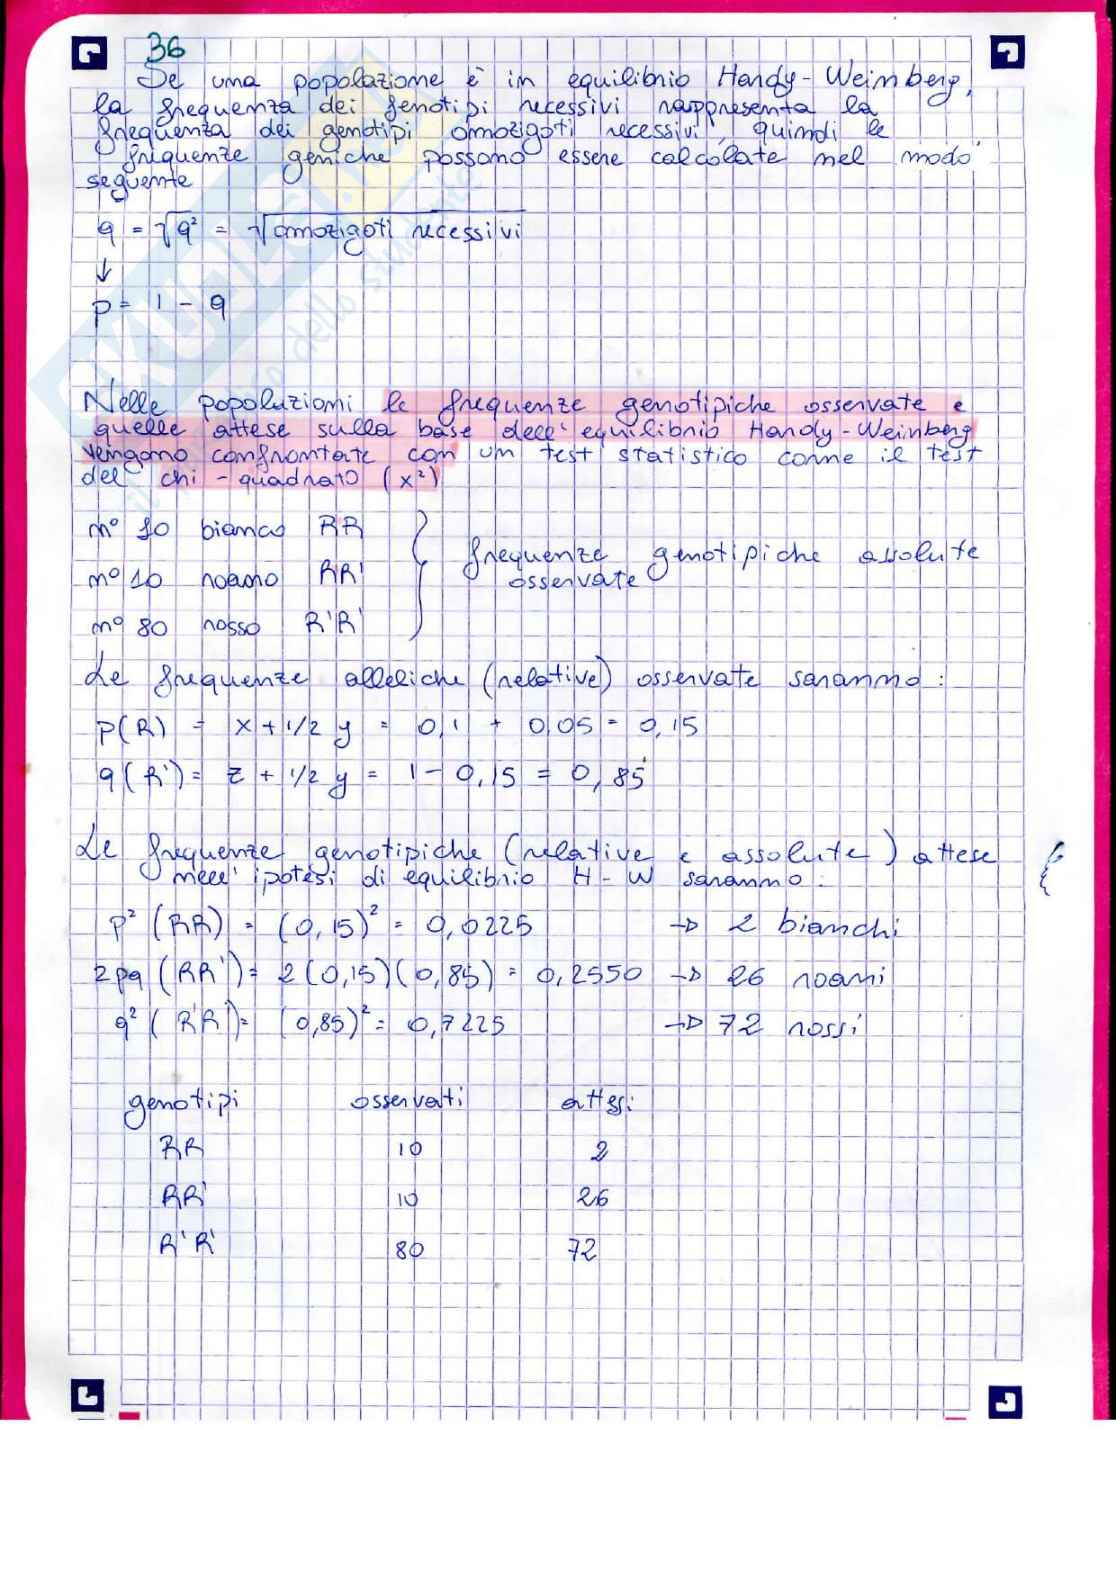 36
Se una popolazione è in equilibrio Hardy-Weinberg,
la frequenza dei fenotipi recessivi rappresenta la
frequenza dei genotipi omozigoti recessivi, quindi le
frequenze geniche possono essere calcolate nel modo
seguente
q = √q² = √omozigoti recessivi
↓
p = 1 - q
Nelle popolazioni le frequenze genotipiche osservate e
quelle attese sulla base dell'equilibrio Hardy-Weinberg
vengono confrontate con un test statistico come il test
del chi-quadrato (x²)
n° 10 bianco RR
n° 10 roano RR'
n° 80 rosso R'R'
frequenze genotipiche assolute
osservate
Le frequenze alleliche (relative) osservate saranno:
p(R) = x + 1/2 y = 0,1 + 0,05 = 0,15
q(R') = z + 1/2 y = 1 - 0,15 = 0,85
Le frequenze genotipiche (relative e assolute) attese
nell'ipotesi di equilibrio H-W saranno:
p² (RR) = (0,15)² = 0,0225 → 2 bianchi
2pq (RR') = 2(0,15)(0,85) = 0,2550 → 26 roani
q² (R'R') = (0,85)² = 0,7225 → 72 rossi
genotipi osservati attesi
RR 10 2
RR' 10 26
R'R' 80 72